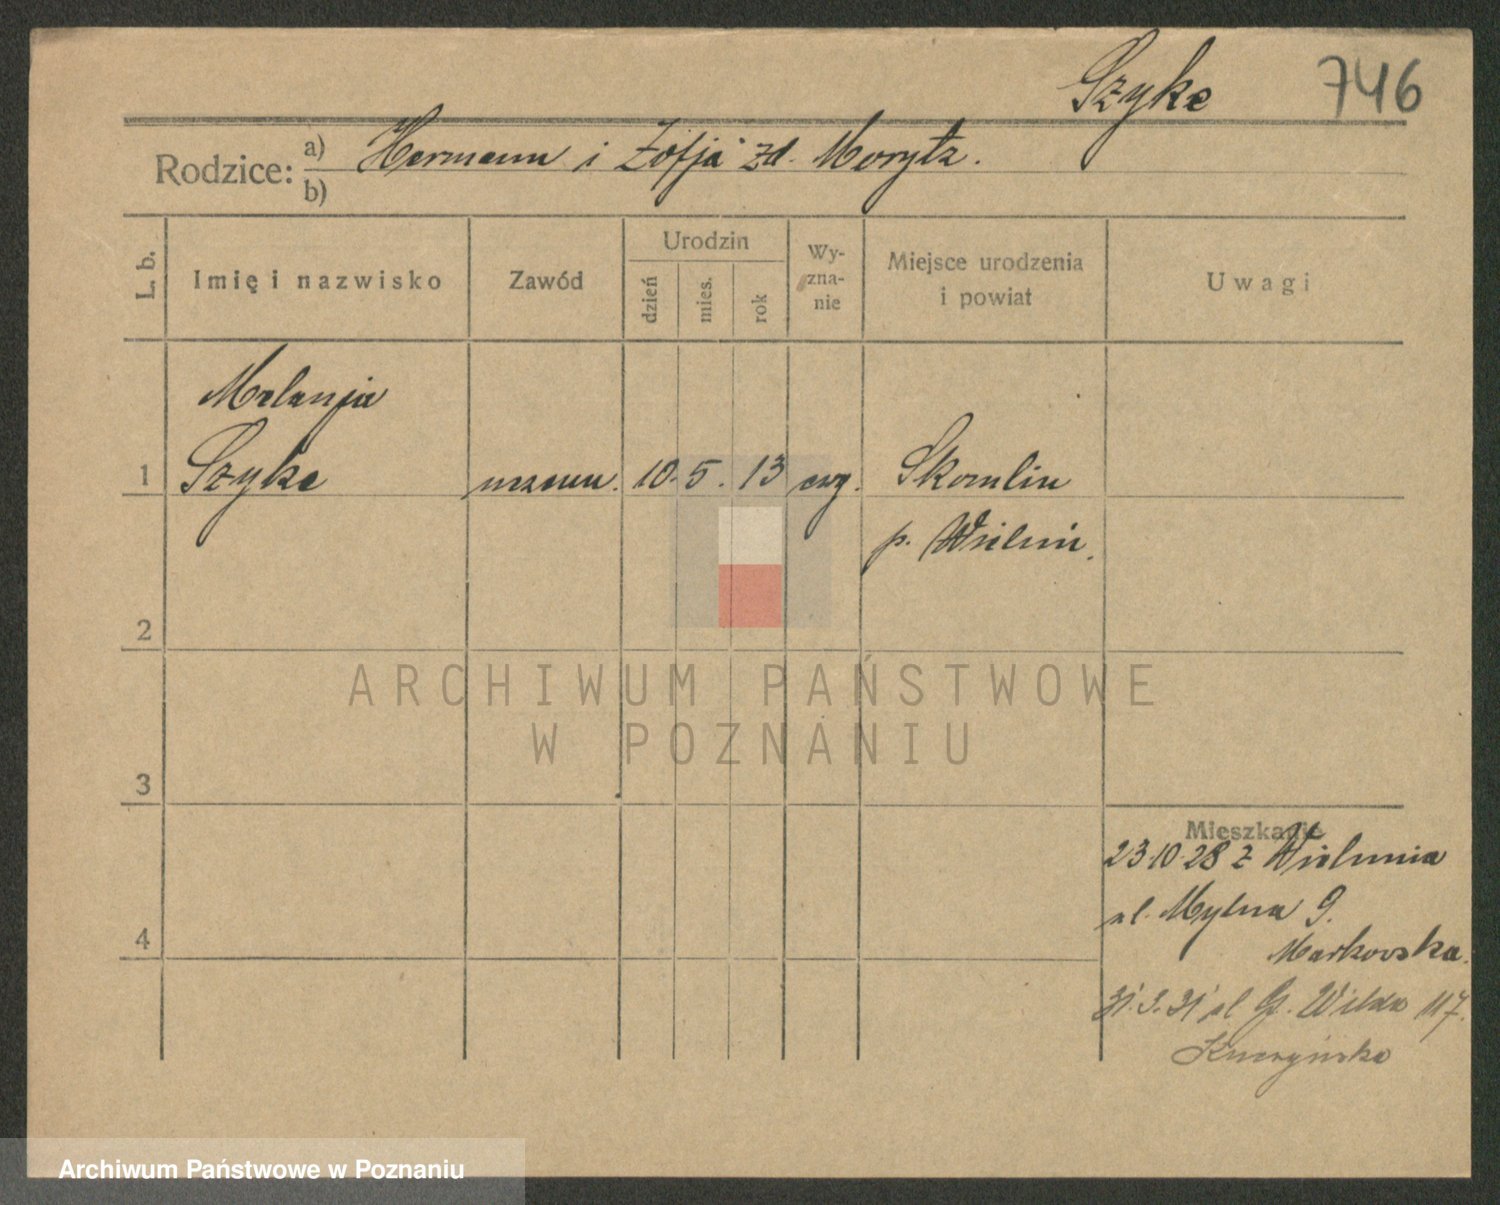 Szyke 746
Rodzice: a) Hermann i Zofja zd. Morytz.
b)
L. b.
Imię i nazwisko
Zawód
Urodzin
dzień
mies.
rok
Wy-
zna-
nie
Miejsce urodzenia
i powiat
Uwagi
Melanja
1 Szyke uczenn. 10. 5. 13 ewg. Skomlin
p. Wieluń.
2
ARCHIWUM PAŃSTWOWE
W POZNANIU
3
Mieszkanie
23.10.28 z Wielunia
ul. Mylna 9.
4
Markowska.
ul G. Wilda 117.
Archiwum Państwowe w Poznaniu